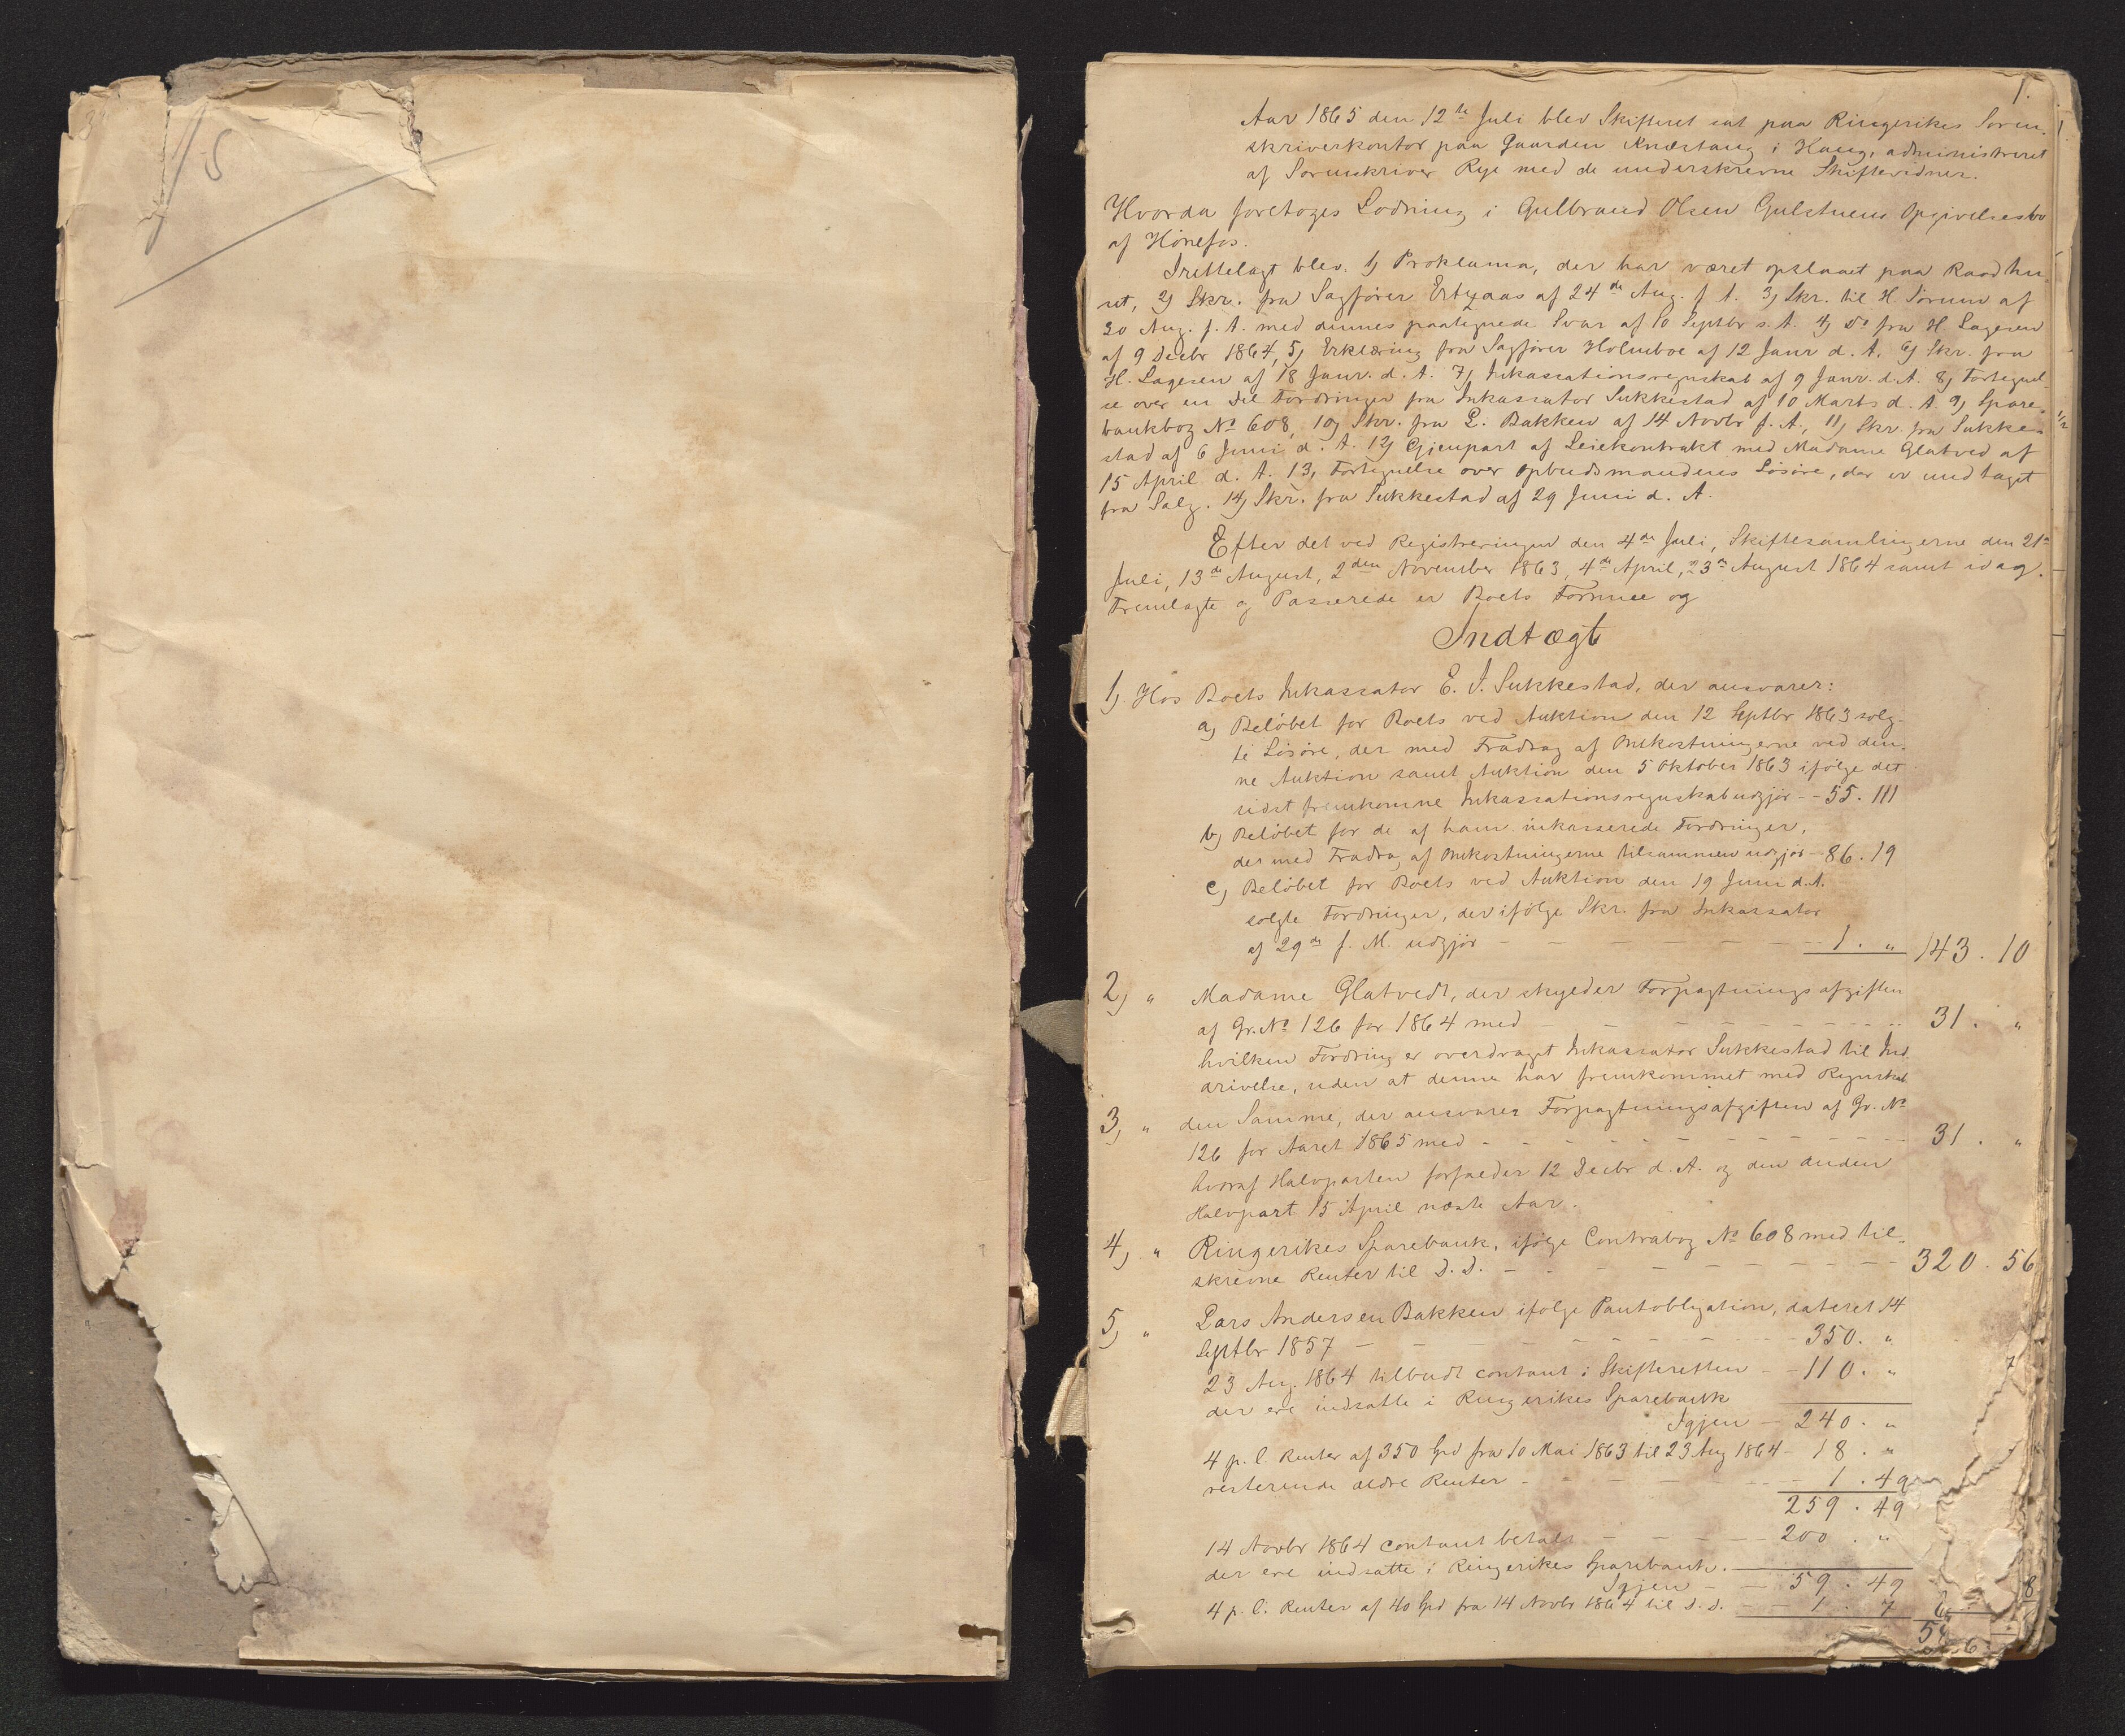 15
1.
Aar 1865 den 12te Juli blev Skifteret sat paa Ringerikes Soren-
skriverkontor paa Gaarden Knæstang i Haug, administreret
af Sorenskriver Rye med de underskrevne Skiftevidner.
Hvorda foretoges Lodning i Gulbrand Olsen Gulstuens Opgivelsesbo
af Hönefos.
Irettelagt blev. 1) Proklama, der har været opslaaet paa Raadhu
set, 2) Skr. fra Sagförer af 24de Aug. f. A. 3) Skr. til H. Sörum af
30 Aug. f. A. med dennes paategnede Svar af 10 Septbr s. A. 4) Do fra H. Lagesen
af 9 Decbr 1864, 5) Erklæring fra Sagförer Holmboe af 12 Janr d. A. 6) Skr. fra
H. Lagesen af 18 Janr. d. A. 7) Inkassationsregnskab af 9 Janr. d. A. 8) Fortegnel-
se over en Del Fordringer fra Inkassator Sukkestad af 10 Marts d. A. 9) Spare-
bankbog No 608, 10) Skr. fra L. Bakken af 14 Novbr f. A., 11) Skr. fra Sukke-
stad af 6 Juni d. A. 12) Gjenpart af Leiekontrakt med Madame Glatved af
15 April d. A. 13) Fortegnelse over Opbudsmandens Lösöre, der er undtaget
fra Salg. 14) Skr. fra Sukkestad af 29 Juni d. A.
Efter det ved Registreringen den 4de Juli, Skiftesamlingerne den 21de
Juli, 13de August, 2den November 1863, 4de April, 23de August 1864 samt idag
Fremlagte og Passerede er Boets Formue og
Indtægt
1) Hos Boets Inkassator E. J. Sukkestad, der ansvarer:
a) Belöbet for Boets ved Auktion den 12 Septbr 1863 solg-
te Lösöre, der med Fradrag af Omkostningerne ved den-
ne Auktion samt Auktion den 5 Oktober 1863 ifölge det
sidst fremkomne Inkassationsregnskab udgjör - - 55. 111
b) Belöbet for de af ham inkasserede Fordringer,
der med Fradrag af Omkostningerne tilsammen udgjör - 86. 19
c) Belöbet for Boets ved Auktion den 19 Juni d. A.
solgte Fordringer, der ifölge Skr. fra Inkassator
af 29de f. M. udgjör - - - - - - 1. " 143. 10
2) " Madame Glatvedt, der skylder Forpagtningsafgiften
af Gr. No 126 for 1864 med - - - - - - 31. "
hvilken Fordring er overdraget Inkassator Sukkestad til Ind-
drivelse, uden at denne har fremkommet med Regnskab
3) " den Samme, der ansvarer Forpagtningsafgiften af Gr. No
126 for Aaret 1865 med - - - - - - 31. "
hvoraf Halvparten forfalder 12 Decbr d. A. og den anden
Halvpart 15 April næste Aar.
4) " Ringerikes Sparebank, ifölge Contrabog No 608 med til-
skrevne Renter til d. d. - - - - - - 320. 56
5) " Lars Andersen Bakken ifölge Pantobligation, dateret 14
Septbr 1857 - - - - - - 350. "
23 Aug. 1864 tilbudt contant i Skifteretten - 110. "
der ere indsatte i Ringerikes Sparebank
Igjen - 240. "
4 p. C. Renter af 350 Spd fra 10 Mai 1863 til 23 Aug 1864 - 18. "
resterende ældre Renter - - - - 1. 49
259. 49
14 Novbr 1864 contant betalt - - - - 200. "
der ere indsatte i Ringerikes Sparebank.
Igjen - - 59. 49
4 p. C. Renter af 40 Spd fra 14 Novbr 1864 til d. d. - - 1. 7